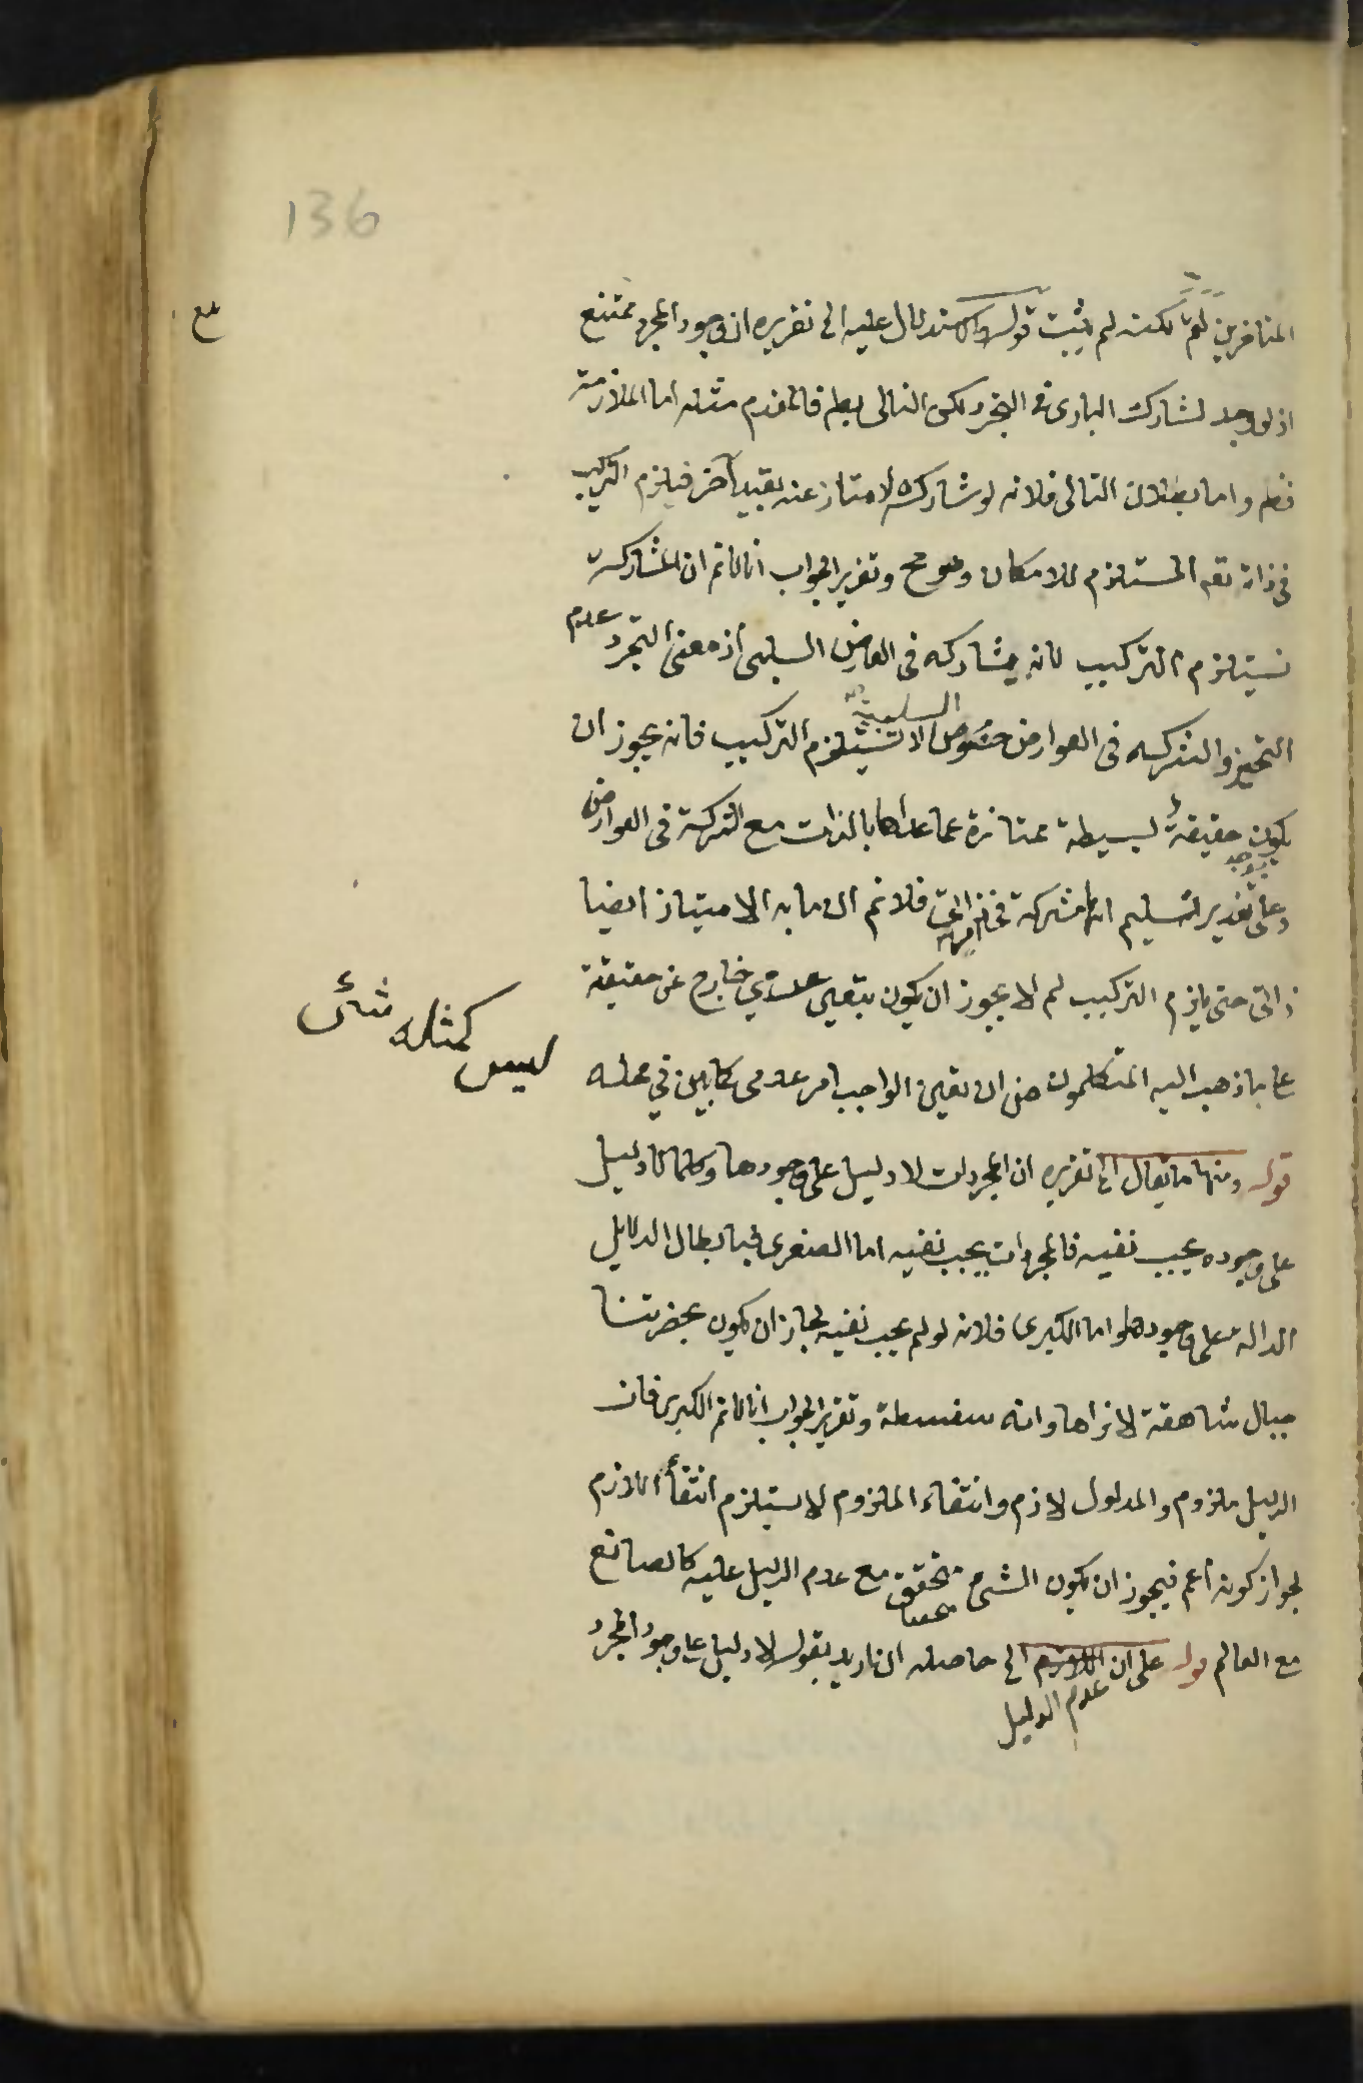 136
المتأخرين لكنه لم يثبت قوله والاستدلال عليه الخ تقريره ان وجود المجرد ممتنع
اذ لو وجد لشارك البارى فى التجرد لكن التالى بط فالمقدم مثله اما الملازمة
فظ واما بطلان التالى فلانه لو شاركه لامتاز عنه بقيد آخر فيلزم التركيب
فى ذاته تعه المستلزم للامكان وهو مح وتقرير الجواب انا لانم ان المشاركة
تستلزم التركيب لانه يشاركه فى العارض السلبى اذ معنى التجرد عدم
التحيز والشركه فى العوارض خصوصا السلبية لا تستلزم التركيب فانه يجوز ان
يكون حقيقة بسيطة ممتازة عما عداها بالذات مع الشركة فى العوارض
وعلى تقدير تسليم انها مشتركة فى ذاتى فلانم ان ما به الامتياز ايضا
ذاتى حتى يلزم التركيب لم لا يجوز ان يكون بتعين عدمي خارج عن حقيقة
على ما ذهب اليه المتكلمون من ان تعين الواجب امر عدمى كما بين في محله
ليس كمثله شئ
قوله ومنها ما يقال الخ تقريره ان المجردات لا دليل على وجودها وكلما لا دليل
على وجوده يجب نفيه فالمجردات يجب نفيه اما الصغرى فبابطال الدلايل
الدالة على وجودها واما الكبرى فلانه لو لم يجب نفيه لجاز ان يكون بحضرتنا
جبال شاهقة لا نراها وانه سفسطة وتقرير الجواب انا لانم الكبرى فان
الدليل ملزوم والمدلول لازم وانتفاء الملزوم لا يستلزم انتفاء اللازم
لجواز كونه أعم فيجوز ان يكون الشئ متحقق مع عدم الدليل عليه كالصانع
مع العالم قوله على ان عدم الدليل الخ حاصله ان اريد بقوله لا دليل على وجود المجرد